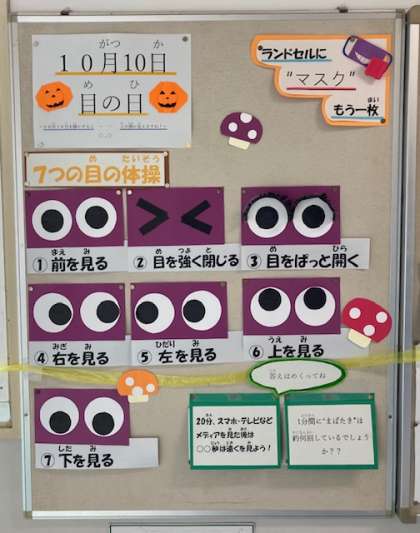 １０月10日
がつ か
目の日
め ひ
ランドセルに
"マスク"
もう一枚
まい
7つの目の体操
め たいそう
① 前を見る
まえ み
② 目を強く閉じる
め つよ と
③ 目をぱっと開く
め ひら
④ 右を見る
みぎ み
⑤ 左を見る
ひだり み
⑥ 上を見る
うえ み
⑦ 下を見る
した み
答えはめくってね
20分、スマホ・テレビなど
メディアを見た後は
〇〇秒は遠くを見よう！
1分間に"まばたき"は
約何回しているでしょう
か？？